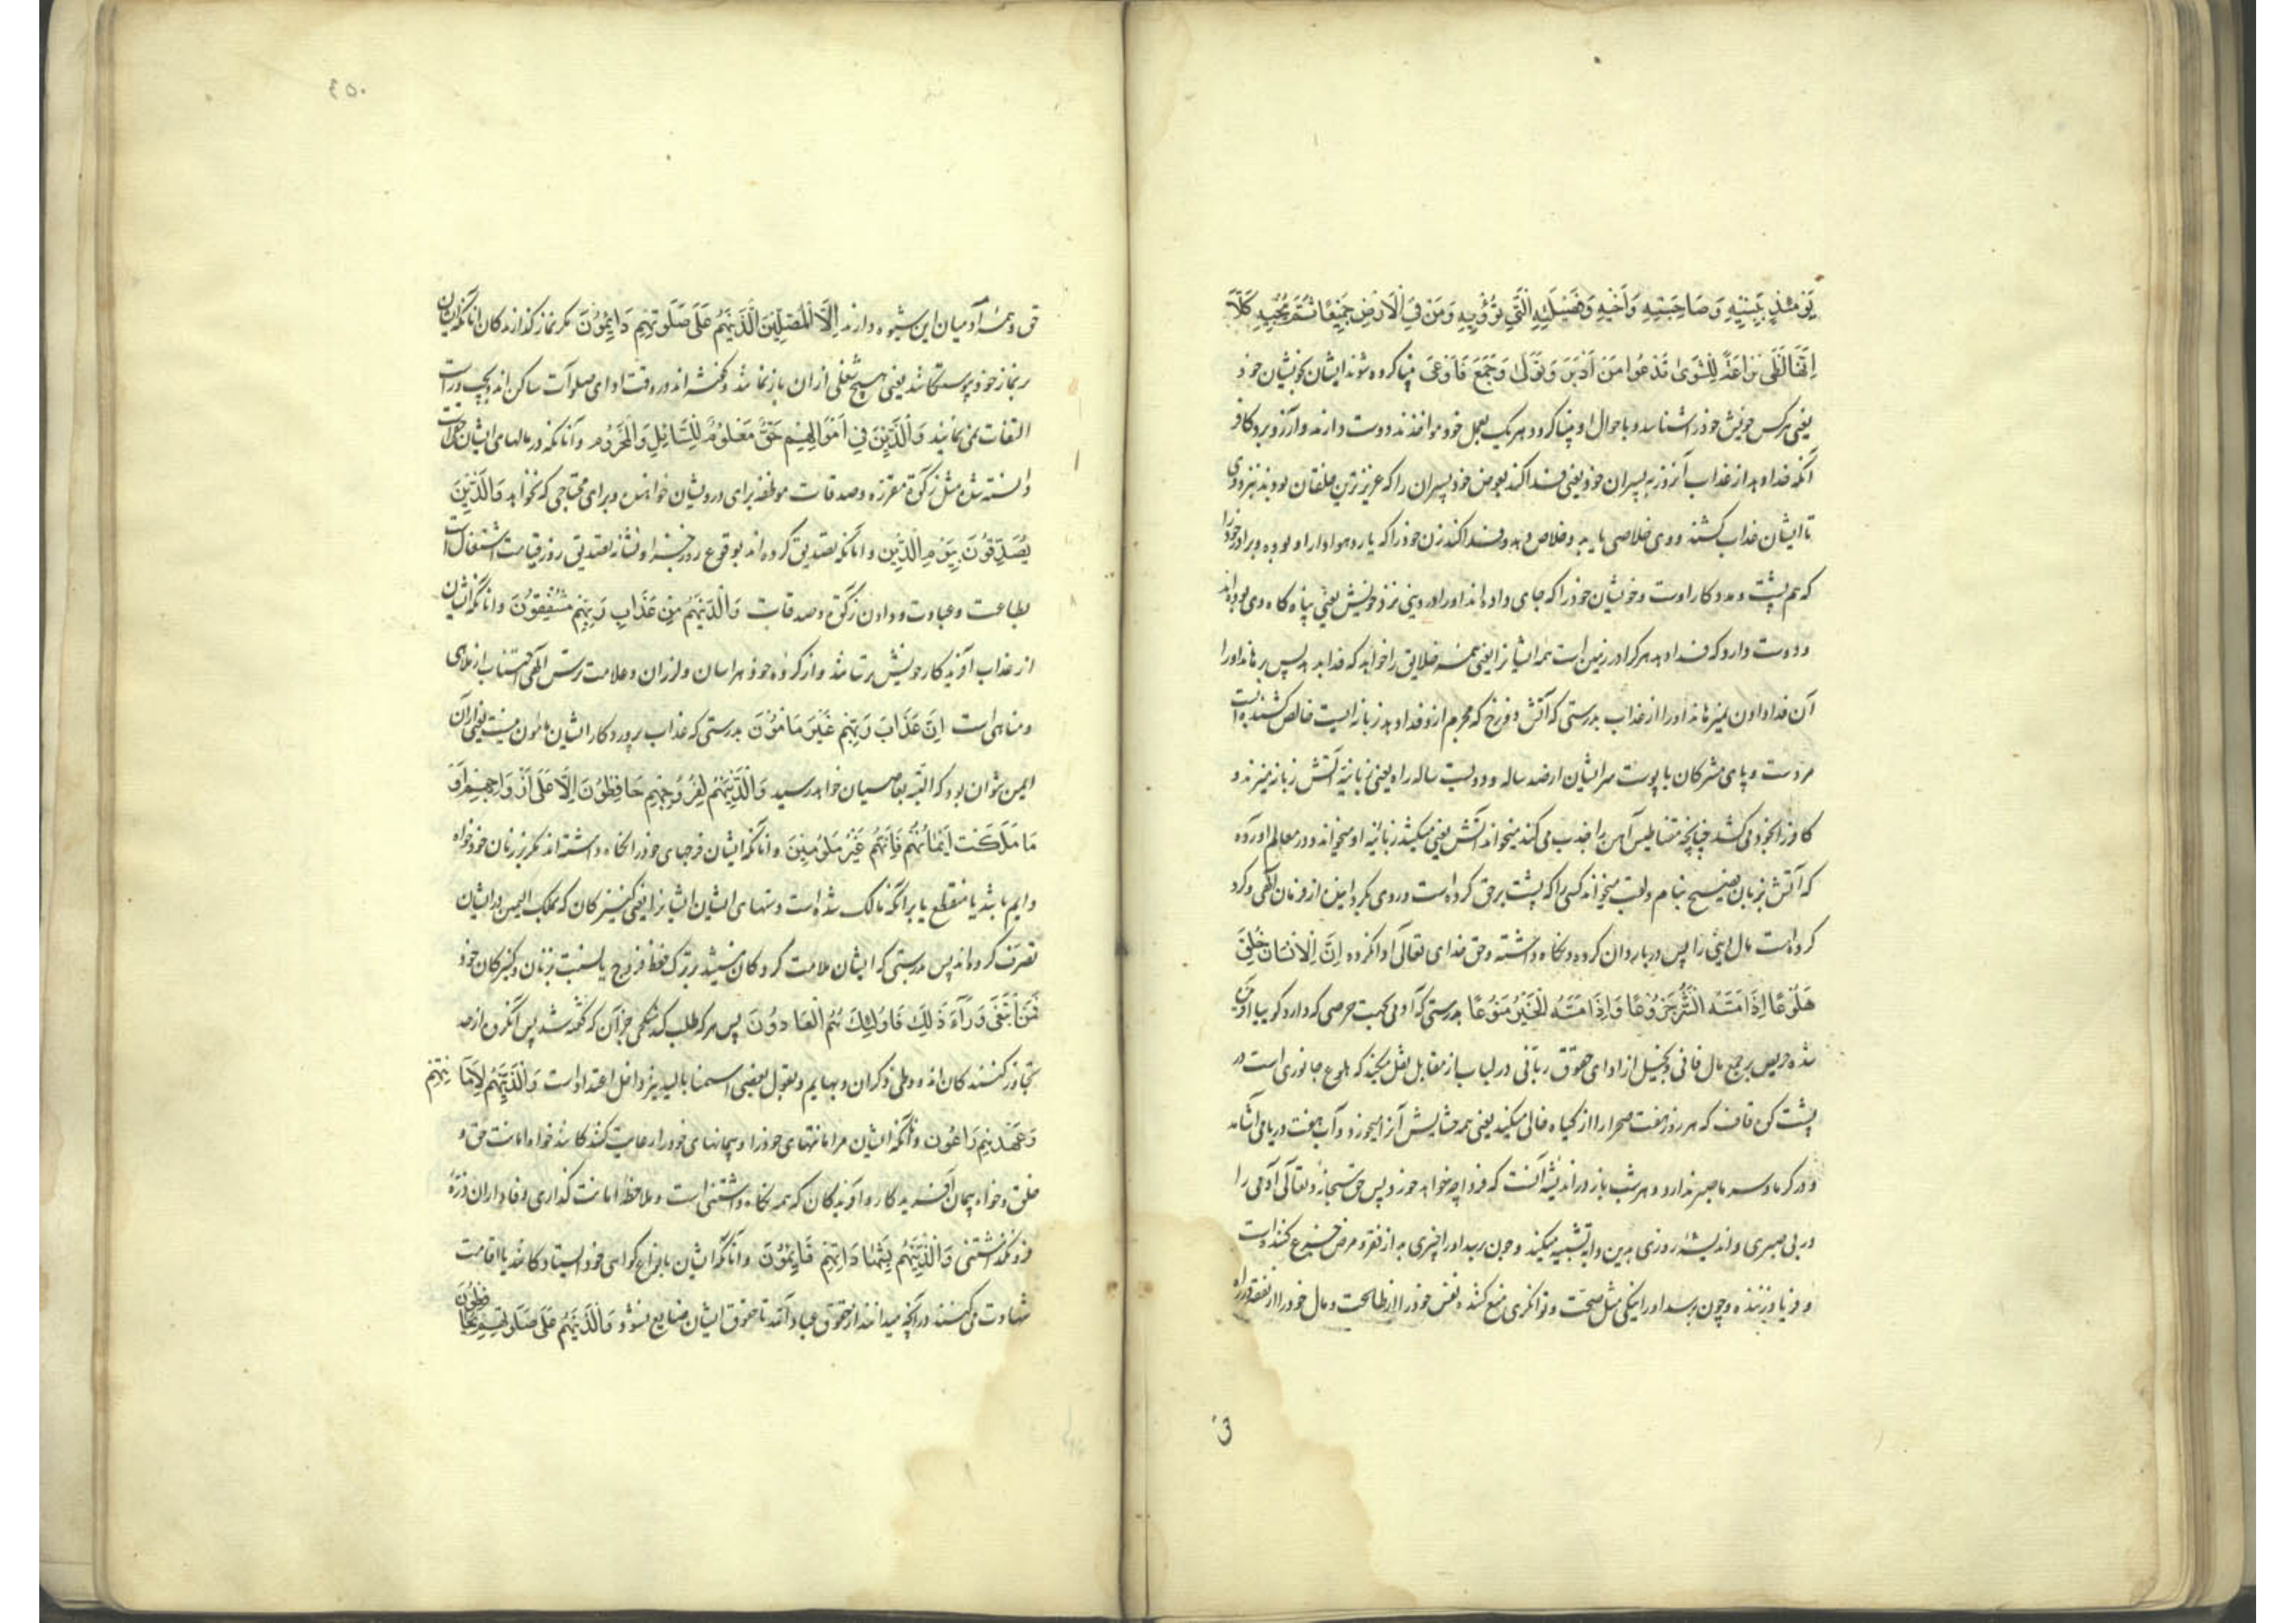 يَوْمَئِذٍ بِبَنِيهِ وَصَاحِبَتِهِ وَأَخِيهِ وَفَصِيلَتِهِ الَّتِي تُؤْوِيهِ وَمَنْ فِي الْأَرْضِ جَمِيعًا ثُمَّ يُنْجِيهِ كَلَّا
إِنَّهَا لَظَى نَزَّاعَةً لِلشَّوَى تَدْعُوا مَنْ أَدْبَرَ وَتَوَلَّى وَجَمَعَ فَأَوْعَى بینا کرده شوند ایشان بخویشان خود
یعنی هر کس خویش خود را شناسد و باحوال او بینا کردد و هر یک بعمل خود مواخذند دوست دارند و آرزو برد کافر
آنکه فدا دهد از عذاب آنروز به پسران خود یعنی فدا کند بعوض خود پسران را که عزیزترین خلقان بودند نزد وی
تا ایشان عذاب کشند و وی خلاصی یابد و خلاص دهد و فدا کند زن خود را که یار و هوادار او بوده و برادر خود را
که هم پشت و مددکار اوست و خویشان خود را که جای داده‌اند او را در دنیا نزد خویش یعنی پناه کاه وی بوده‌اند
و دوست دارد که فدا دهد هر کرا در زمین است همه ایشانرا یعنی همه خلایق را خواهد که فدا دهد پس برهاند او را
آن فدا دادن نمیرهاند او را از عذاب بدرستی که آتش دوزخ که مجرم ازو فدا دهد زبانه ایست خالص کشنده است
مر دست و پای مشرکان یا پوست سر ایشان از صد ساله و دویست ساله راه یعنی زبانیه آتش زبانه میزند و
کافر را بخود می کشد چنانچه مقناطیس آهن را جذب می کند میخواند آتش یعنی میکشد زبانیه او میخواند و در معالم آورده
که آتش بزبان فصیح بنام و لقب میخواند کسی را که پشت بر حق کرده است و روی بکردانیده از فرمان الهی و کرد
کرده است مال دنیی را پس در باردان کرده و نکاه داشته و حق خدای تعالی ادا نکرده إِنَّ الْإِنْسَانَ خُلِقَ
هَلُوعًا إِذَا مَسَّهُ الشَّرُّ جَزُوعًا وَإِذَا مَسَّهُ الْخَيْرُ مَنُوعًا بدرستی که آدمی بجهت حرصی که دارد کوییا آفریده
شده حریص بر جمع مال فانی و بخیل از ادای حقوق ربانی در لباب از مقاتل نقل میکند که هلوع جانوری است در
پشت کوه قاف که هر روز هفت صحرا را از کیاه خالی میکند یعنی همه حشایش آنرا میخورد و آب هفت دریا می آشامد
و در کرما و سرما صبر ندارد و هر شب باز در اندیشه آنست که فردا چه خواهد خورد پس حق سبحانه و تعالی آدمی را
در بی صبری و اندیشهٔ روزی بدین دابه تشبیه میکند و چون برسد او را چیزی بد از فقر و مرض جزع کننده است
و فریاد زننده و چون برسد او را نیکی مثل صحت و توانکری منع کننده نفس خود را از طاعت و مال خود را از نفقه در راه
حق
٤٥٠
حق و همه آدمیان این شیوه دارند إِلَّا الْمُصَلِّينَ الَّذِينَهُمْ عَلَى صَلَوتِهِمْ دَائِمُونَ مکر نماز کذارندکان انانکه ایشان
بر نماز خود پیوستکانند یعنی هیچ شغلی از ان باز نمانند و کفته‌اند در وقت ادای صلوات ساکن‌اند و بچپ و راست
التفات نمی نمایند وَالَّذِينَ فِي أَمْوَالِهِمْ حَقٌّ مَعْلُومٌ لِلسَّائِلِ وَالْمَحْرُومِ و آنانکه در مالهای ایشان حق است
دانسته شده مثل زکوة مقرره و صدقات موظفه برای درویشان خواهنده و برای محتاجی که نخواهد وَالَّذِينَ
يُصَدِّقُونَ بِيَوْمِ الدِّينِ و انانکه تصدیق کرده‌اند بوقوع روز جزا و نشانه تصدیق روز قیامت اشتغال است
بطاعت و عبادت و دادن زکوة و صدقات وَالَّذِينَهُمْ مِنْ عَذَابِ رَبِّهِمْ مُشْفِقُونَ و انانکه ایشان
از عذاب آفریدکار خویش ترسانند و از کرده خود هراسان و لرزان و علامت ترس الهی اجتناب از ملاهی
و مناهی است إِنَّ عَذَابَ رَبِّهِمْ غَيْرُ مَأْمُونٍ بدرستی که عذاب پروردکار ایشان مامون نیست یعنی از ان
ایمن نتوان بود که البته بعاصیان خواهد رسید وَالَّذِينَهُمْ لِفُرُوجِهِمْ حَافِظُونَ إِلَّا عَلَى أَزْوَاجِهِمْ أَوْ
مَا مَلَكَتْ أَيْمَانُهُمْ فَإِنَّهُمْ غَيْرُ مَلُومِينَ و انانکه ایشان فرجهای خود را نکاه داشته‌اند مکر بر زنان خود خواه
دایم باشد یا منقطع یا بر آنکه مالک شده است دستهای ایشان ایشانرا یعنی کنیزکان که بملک الیمین در ایشان
تصرف کرده‌اند پس بدرستی که ایشان ملامت کردکان نیستند بر ترک حفظ فروج یا نسبت بزنان و کنیزکان خود
فَمَنِ ابْتَغَى وَرَاءَ ذَلِكَ فَأُولَئِكَ هُمُ الْعَادُونَ پس هر که طلب کند نکاحی جز آن که کفته شد پس آنکروه از حد
تجاوز کنندکان‌اند و وطی ذکران و بهایم و بقول بعضی استمنا بالید نیز داخل اعتداء است وَالَّذِينَهُمْ لِأَمَانَاتِهِمْ
وَعَهْدِهِمْ رَاعُونَ و آنانکه ایشان مر امانتهای خود را و پیمانهای خود را رعایت کنندکانند خواه امانت حق و
خلق و خواه پیمان آفریدکار و آفریدکان که همه نکاه داشتنی است و ملاحظه امانت کذاری و وفاداران ذرهٔ
فرو نکذاشتنی وَالَّذِينَهُمْ بِشَهَادَاتِهِمْ قَائِمُونَ و آنانکه ایشان بانواع کواهی خود ایستادکانند یا اقامت
شهادت می کنند در آنچه میدانند از حقوق عباد الله تا حقوق ایشان ضایع نشود وَالَّذِينَهُمْ عَلَى صَلَوتِهِمْ يُحَافِظُونَ